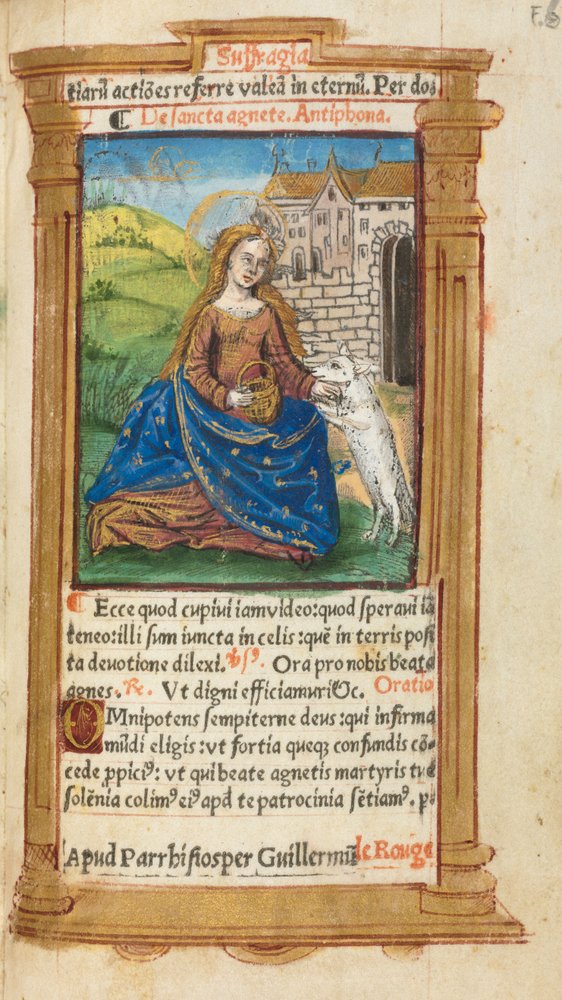 F.6
Suffragia
tiarū actiōes referre valeā in eternū. Per dos
¶ De sancta agnete. Antiphona.
¶ Ecce quod cupiui iam video: quod speraui iā
teneo: illi sum iuncta in celis: quē in terris posi
ta deuotione dilexi. Ora pro nobis beata
agnes. Re. Vt digni efficiamur. Oratio
OMnipotens sempiterne deus: qui infirma
mūdi eligis: vt fortia queqꝫ confundis cō-
cede ꝓpiciꝰ: vt qui beate agnetis martyris tue
solēnia colimꝰ eiꝰ apd te patrocinia sētiamꝰ. p.
Apud Parrhisios per Guillermū le Rouge